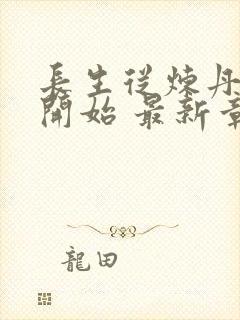 長生從煉丹
開始 最新章
龍田